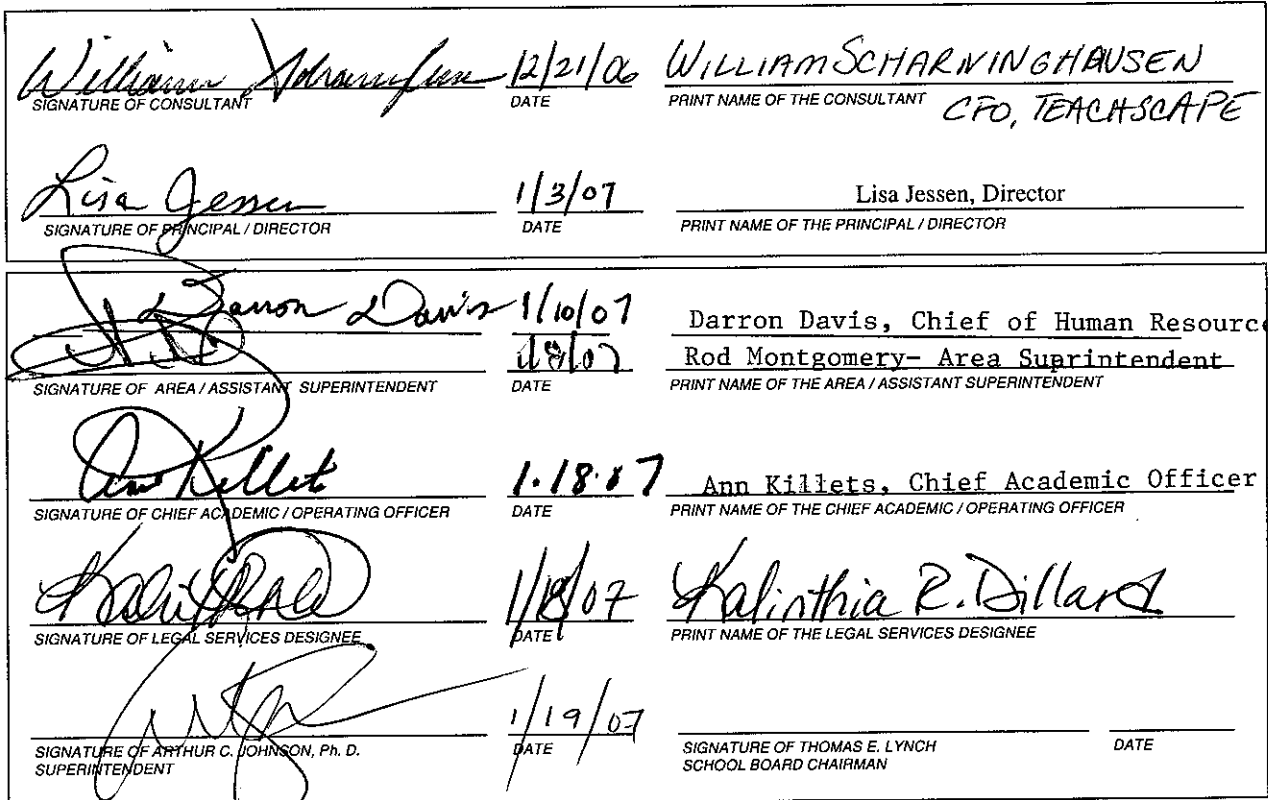 William 12/21/06 WILLIAM SCHARNINGHAUSEN
SIGNATURE OF CONSULTANT DATE PRINT NAME OF THE CONSULTANT
CFO, TEACHSCAPE
Lisa Jessen 1/3/07 Lisa Jessen, Director
SIGNATURE OF PRINCIPAL / DIRECTOR DATE PRINT NAME OF THE PRINCIPAL / DIRECTOR
Darron Davis 1/10/07 Darron Davis, Chief of Human Resource
1/8/07 Rod Montgomery- Area Suprintendent
SIGNATURE OF AREA / ASSISTANT SUPERINTENDENT DATE PRINT NAME OF THE AREA / ASSISTANT SUPERINTENDENT
Ann Killets 1.18.07 Ann Killets, Chief Academic Officer
SIGNATURE OF CHIEF ACADEMIC / OPERATING OFFICER DATE PRINT NAME OF THE CHIEF ACADEMIC / OPERATING OFFICER
1/18/07 Kalinthia R. Dillard
SIGNATURE OF LEGAL SERVICES DESIGNEE DATE PRINT NAME OF THE LEGAL SERVICES DESIGNEE
1/19/07
SIGNATURE OF ARTHUR C. JOHNSON, Ph. D. DATE SIGNATURE OF THOMAS E. LYNCH DATE
SUPERINTENDENT SCHOOL BOARD CHAIRMAN